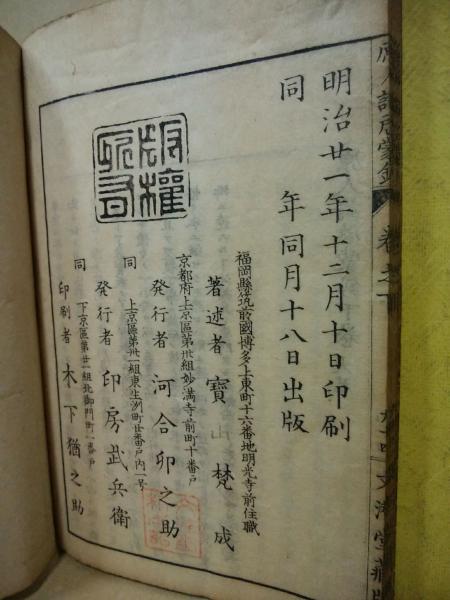 明治廿一年十二月十日印刷
同年同月十八日出版
福岡縣筑前國博多上東町十六番地明光寺前住職
著述者 寶山梵成
京都府上京區第卅組妙満寺前町十番戸
発行者 河合卯之助
同 上京區第卅一組東生洲町廿番戸内一号
発行者 印房武兵衛
同 下京區第廿一組北御門町一番戸
印刷者 木下猶之助
版權所有
卷之下